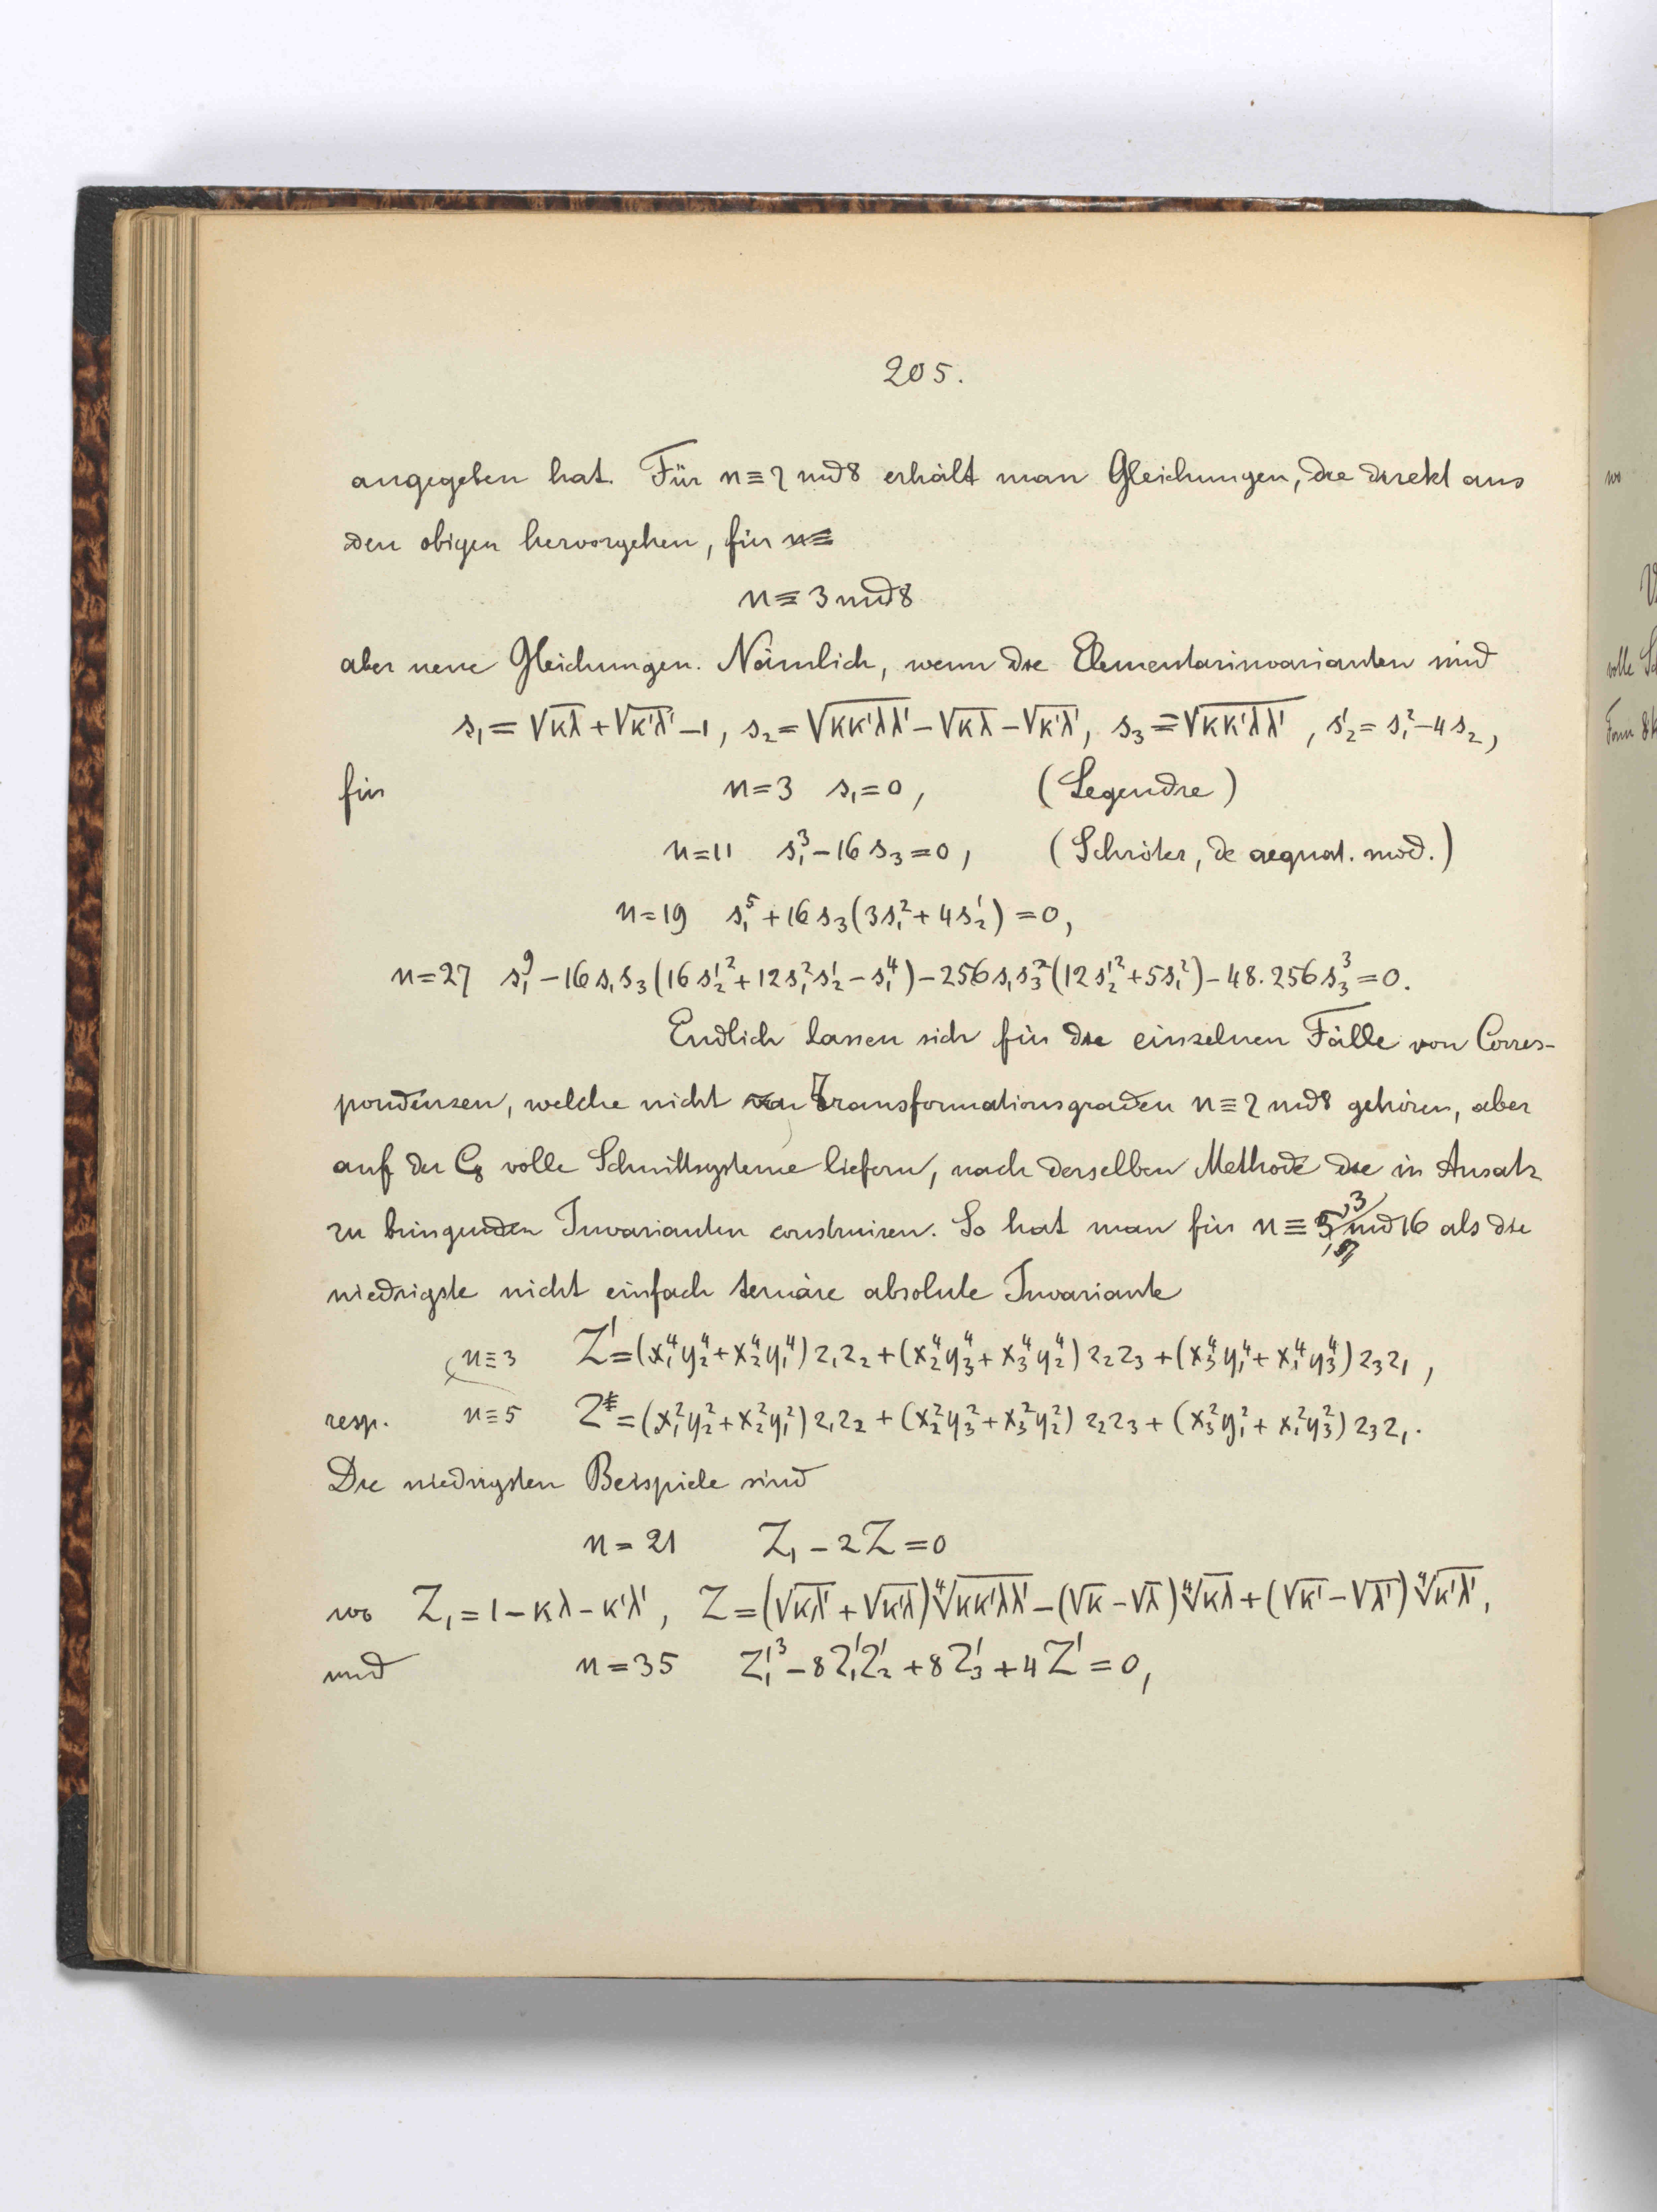 205.
angegeben hat. Für n≡7 mod 8 erhält man Gleichungen, die direkt aus
den obigen hervorgehen, für n≡
n≡3 mod 8
aber neue Gleichungen. Nämlich, wenn die Elementarinvarianten sind
s₁ = √κλ + √κ'λ' − 1, s₂ = √κκ'λλ' − √κλ − √κ'λ', s₃ = √κκ'λλ', s₂' = s₁² − 4s₂,
für n=3 s₁=0, (Legendre)
n=11 s₁³ − 16s₃ = 0, (Schröter, de aequat. mod.)
n=19 s₁⁵ + 16s₃(3s₁² + 4s₂') = 0,
n=27 s₁⁹ − 16s₁s₃(16s₂'² + 12s₁²s₂' − s₁⁴) − 256s₁s₃²(12s₂'² + 5s₁²) − 48.256s₃³ = 0.
Endlich lassen sich für die einzelnen Fälle von Corres-
pondenzen, welche nicht zu Transformationsgraden n≡7 mod 8 gehören, aber
auf der C₈ volle Schnittsysteme liefern, nach derselben Methode die in Ansatz
zu bringenden Invarianten construiren. So hat man für n≡ 3, 5 mod 16 als die
niedrigste nicht einfach ternäre absolute Invariante
n≡3 Z' = (x₁⁴y₂⁴ + x₂⁴y₁⁴) z₁z₂ + (x₂⁴y₃⁴ + x₃⁴y₂⁴) z₂z₃ + (x₃⁴y₁⁴ + x₁⁴y₃⁴) z₃z₁,
resp. n≡5 Z = (x₁²y₂² + x₂²y₁²) z₁z₂ + (x₂²y₃² + x₃²y₂²) z₂z₃ + (x₃²y₁² + x₁²y₃²) z₃z₁.
Die niedrigsten Beispiele sind
n = 21 Z₁ − 2Z = 0
wo Z₁ = 1 − κλ − κ'λ', Z = (√κλ' + √κ'λ) ∜κκ'λλ' − (√κ − √λ) ∜κλ + (√κ' − √λ') ∜κ'λ',
und n = 35 Z₁'³ − 8Z₁'Z₂' + 8Z₃' + 4Z' = 0,
wo
volle Sch